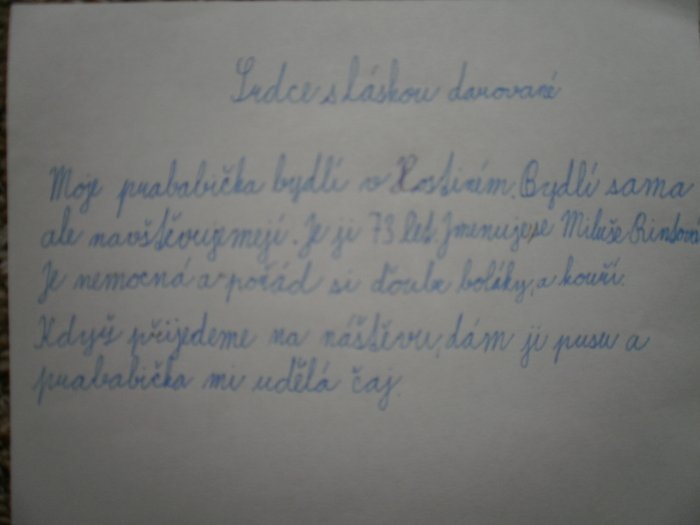 Srdce s láskou darované
Moje prababička bydlí v Kostirém. Bydlí sama
ale navštěvujemejí. Je ji 73 let. Jmenuje se Miluše
Je nemocná a pořád si ďoube boláky, a kouří.
Když přijedeme na náštěvu, dám ji pusu a
prababička mi udělá čaj.